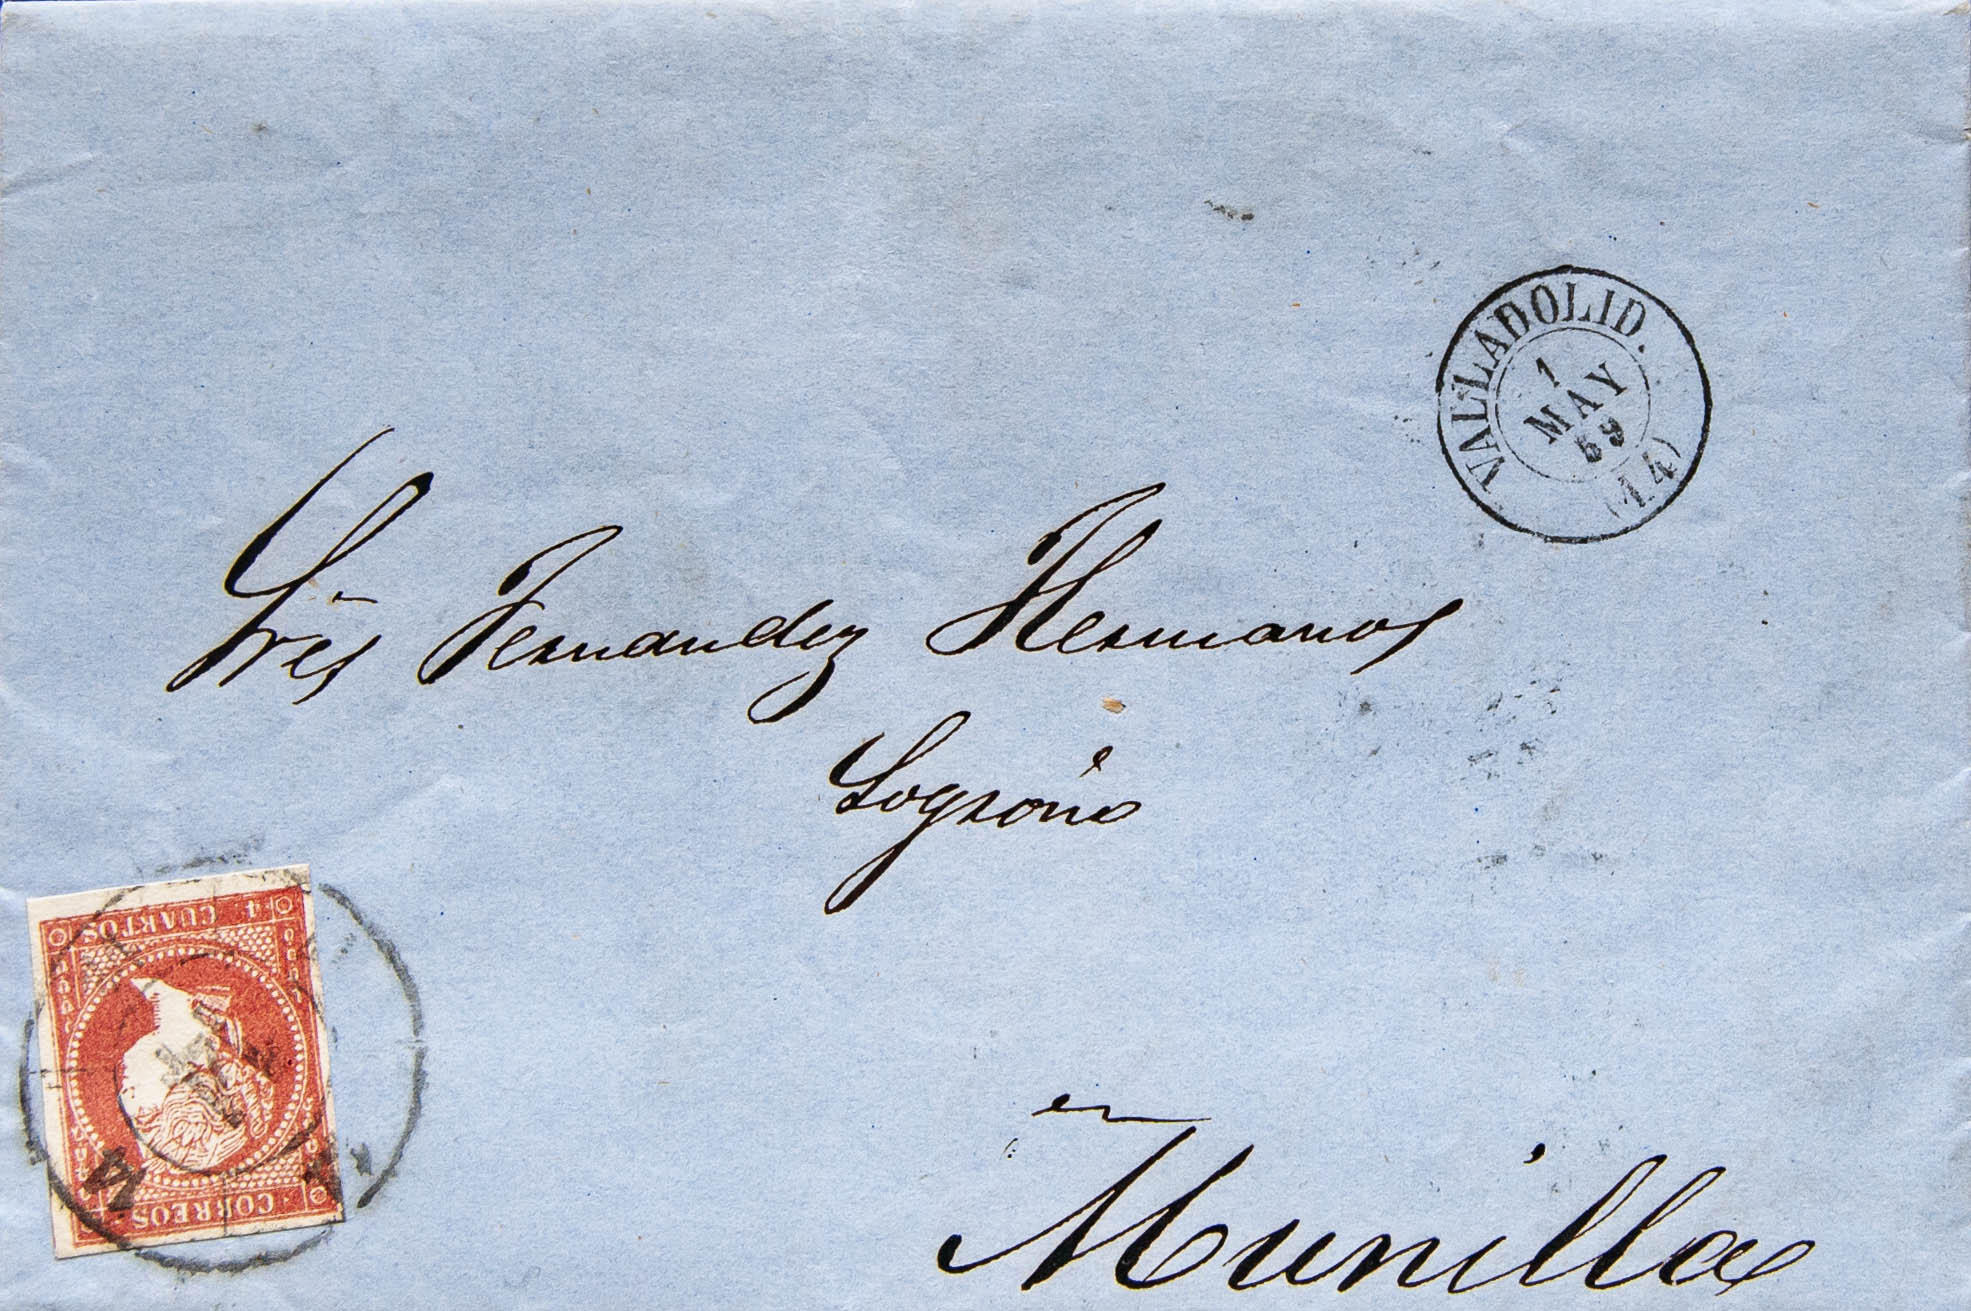 VALLADOLID.
1
MAY
59
(14)
Sres Fernandez Hermanos
Logroño
en
Munilla
4 CUARTOS
CORREOS